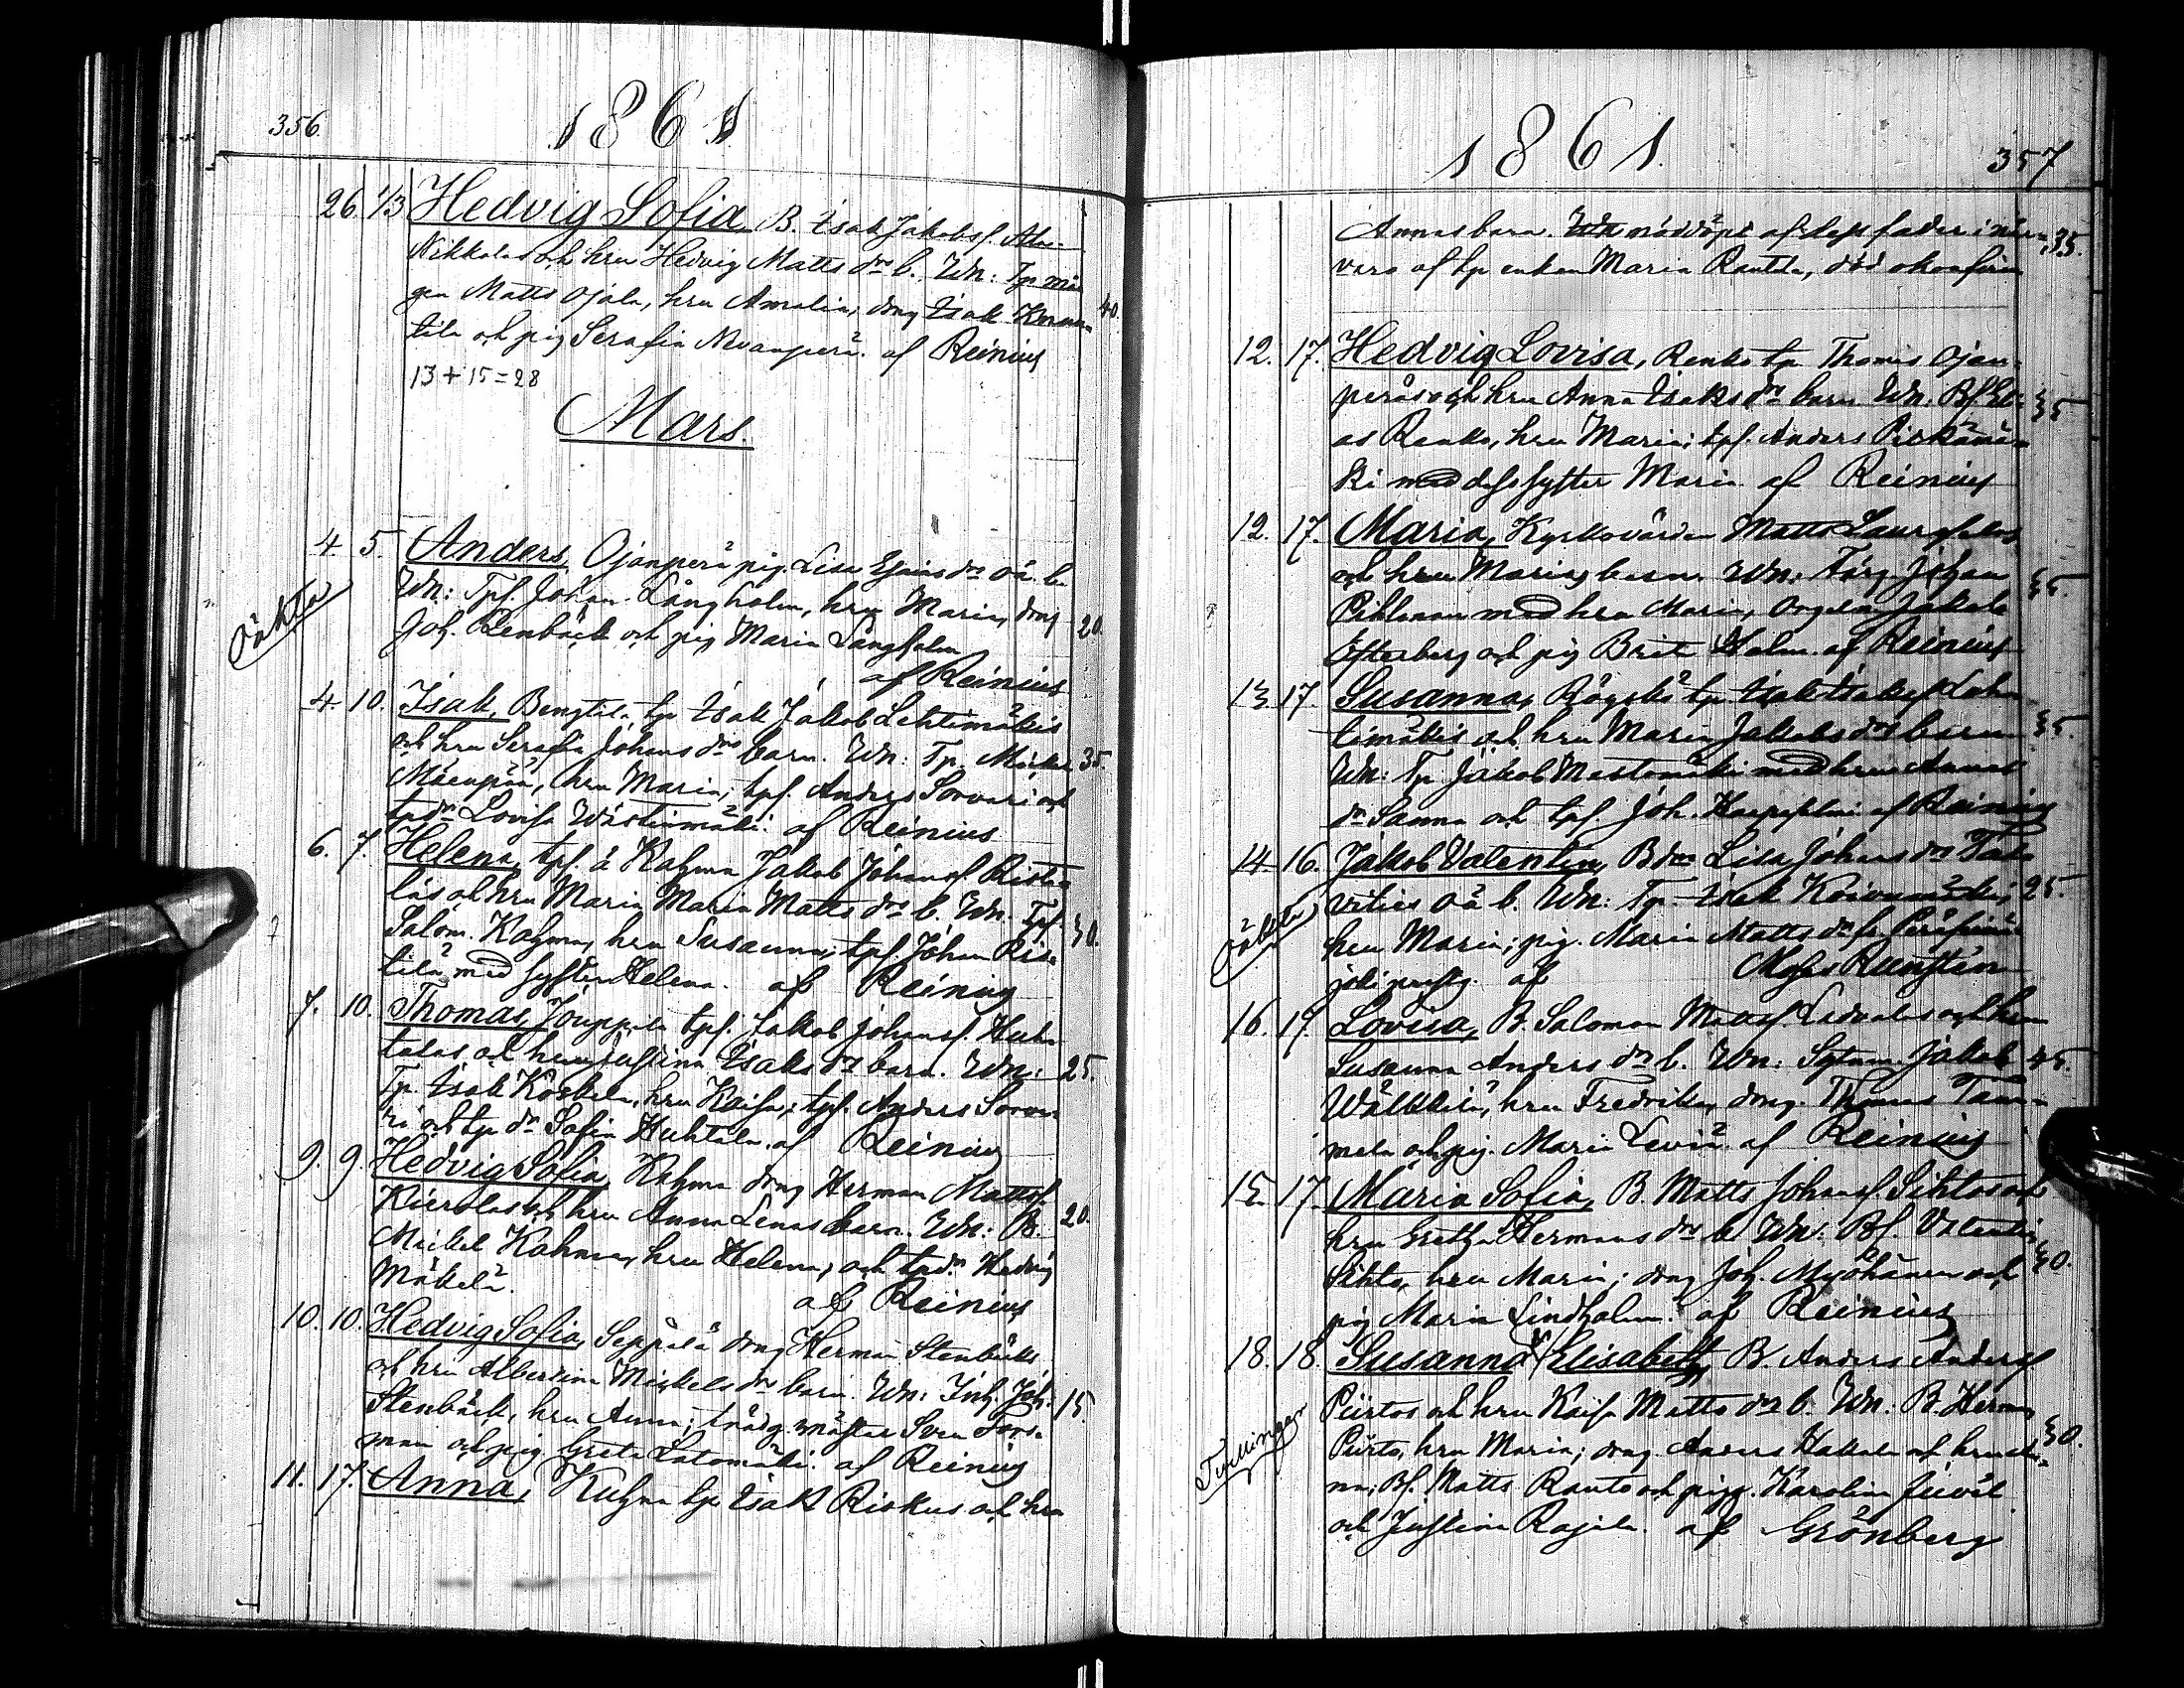 356.
1861
26 1/3 Hedvig Sofia B. Isak Jakobss. Ala-
Nikkolas och hru Hedvig Matts dr b. Wn: Tp
gen Matts Ojala, hru Amalia; dräng Isak
tila och pig Serafia Nevanperä. af Reinius
40.
13 + 15 = 28
Mars.
4 5. Anders, Ojanperä pig. Lisa dr oä. b.
Wn: Tps. Johan Långholm, hru Maria, dräng
Joh. Renbäck och pig Maria Långholm
af Reinius
20.
oäkta
4 10. Isak, Bengtila tp Isak Jakob Lehtimäkis
och hru Serafia Johans drs barn. Wn: Tp. Mickel
Mäenpää, hru Maria; tps. Anders Sorvari och
tpdr Lovisa Västinmäki. af Reinius
35.
6. 7. Helena, tps. å Kahma Jakob Johanss. Risti-
läs och hru Maria Maria Matts dr b. Wn. Tps.
Salom. Kahma, hru Susanna; tps. Johan Ris-
tilä med syster Helena. af Reinius
30.
7. 10. Thomas, Jouppila tps. Jakob Johanss. Huh-
talas och hru Justina Isaks dr barn. Wn:
Tp Isak Koskela, hru Kaisa; tps. Anders Sorva-
ri och tp dr Sofia Huhtala. af Reinius
25.
9. 9. Hedvig Sofia, Kahma dräng Herman Mattss.
och hru Anna Lenas barn. Wn: B.
Mickel Kahma, hru Helena, och tpdr. Hedvig
Mäkelä. af Reinius
20.
10. 10. Hedvig Sofia, Seppälä dräng Herman Stenbäcks
och hru Albertina Mickels dr barn. Wn: Inh. Joh.
Stenbäck, hru Anna; trädg.mästar Sven Fors-
man och pig Greta Latomäki. af Reinius
15.
11. 17. Anna, Kahma tp Isak Riskus och hru
1861.
357
Annas barn. Wn nöddöpt af dess fader i när-
varo af tp enkan Maria Rantala, död
35.
12. 17. Hedvig Lovisa, Renko tp Thomas Ojan-
peräs och hru Anna Isaks dr barn. Wn: Bs. Eli-
as Renko, hru Maria; tps. Anders Pitkämä-
ki med dess syster Maria af Reinius
35
12. 17. Maria, Kyrkovärden Matts
och hru Marias barn. Wn: Färg. Johan
Pihlman med hru Maria, Jakob
Österberg och pig Brita Holm. af Reinius
35.
13 17. Susanna, Rögskö tp Isak Isakss. Leh-
timäkis och hru Maria Jakobs drs barn
Wn: Tp. Jakob Mastomäki med hru Anna
dr Sanna och tps. Joh. af Reinius
35.
14. 16. Jakob Valentin, B dr Lisa Johans dr
vities oä b. Wn: Tp. Isak Koivumäki,
hru Maria; pig. Maria Matts dr fr.
joki af
25.
oäkta
16. 19. Lovisa, B. Salomon Mattss. Ledvalas och hru
Susanna Anders dr b. Wn: Sytnm. Jakob
Wälkkilä, hru Fredrika, dräng. Thomas Tam-
mela och pig. Maria Leviä. af Reinius
45.
15. 17. Maria Sofia, B. Matts Johanss. Sihtos och
hru Gretha Hermans dr b. Wn: Bs. Valentin
Sihto, hru Maria; dräng Joh. Myöhänen och
pig Maria Lindholm. af Reinius
30.
18. 18. Susanna & Elisabeth, B. Anders Anderss.
Piirtos och hru Kaisa Matts dr b. Wn. B. Herman
Piirto, hru Maria; dräng. Anders Hakala och hru
na; Bs. Matts Ranto och pigg. Karolina
och Justina Rajala. af Grönberg
30.
Tvillingar